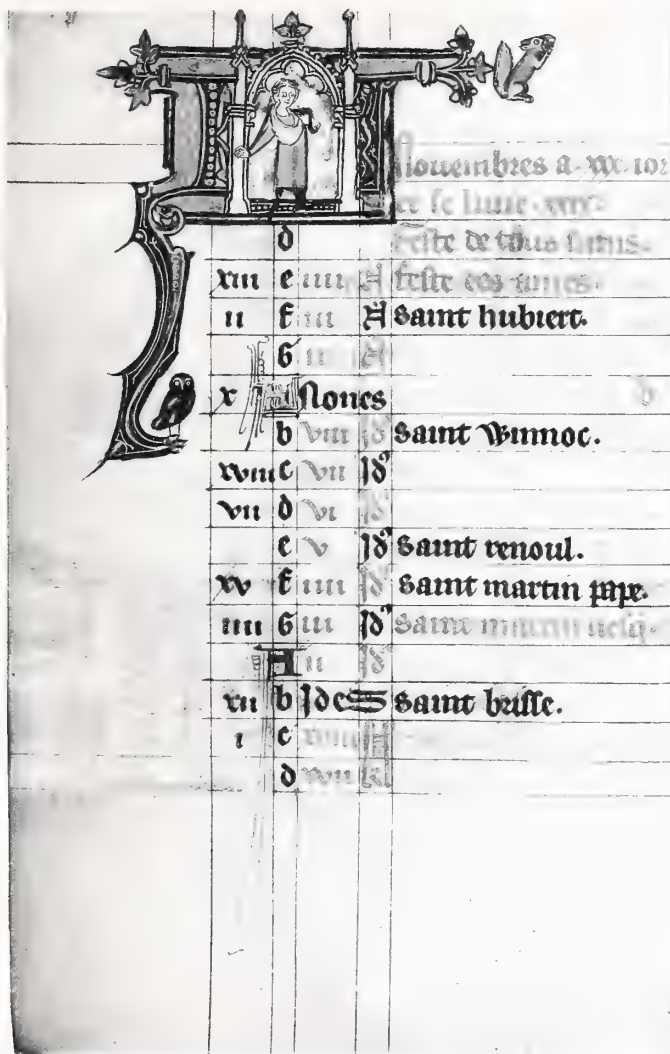 Nouembres a xxx ior
et le lune xxix.
d feste de tous sains.
xiii e iiii N feste des ames.
ii f iii N saint hubiert.
G ii N
x A nones
b viii Id saint winnoc.
xviii c vii Id
vii d vi Id
e v Id saint renoul.
xv f iiii Id saint martin pape.
iiii G iii Id saint martin uesq.
A ii Id
xii b Ides saint brisse.
i c xviii K
d xvii K